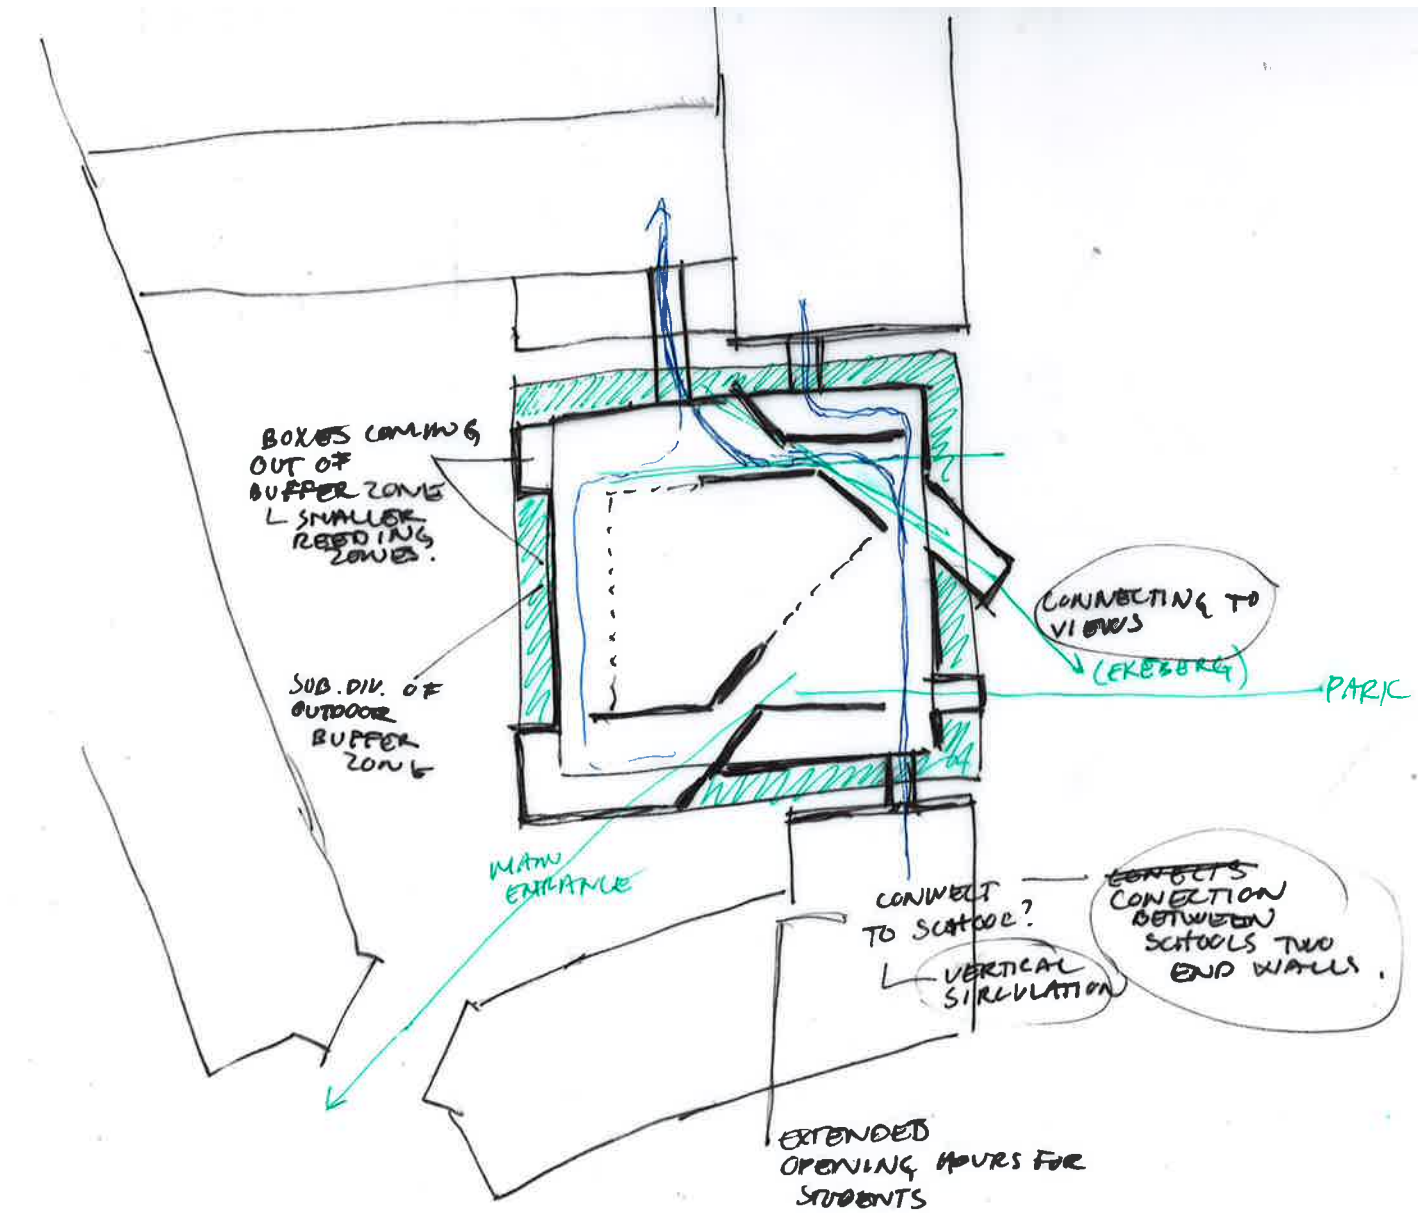 BOXES COMING
OUT OF
BUFFER ZONE
SMALLER
REEDING
ZONES.
SUB. DIV. OF
OUTDOOR
BUFFER
ZONE
CONNECTING TO
VIEWS
(EKEBERG)
PARK
MAIN
ENTRANCE
CONNECT
TO SCHOOL?
VERTICAL
SIRCULATION
CONECTS
CONECTION
BETWEEN
SCHOOLS TWO
END WALLS.
EXTENDED
OPENING HOURS FOR
STUDENTS